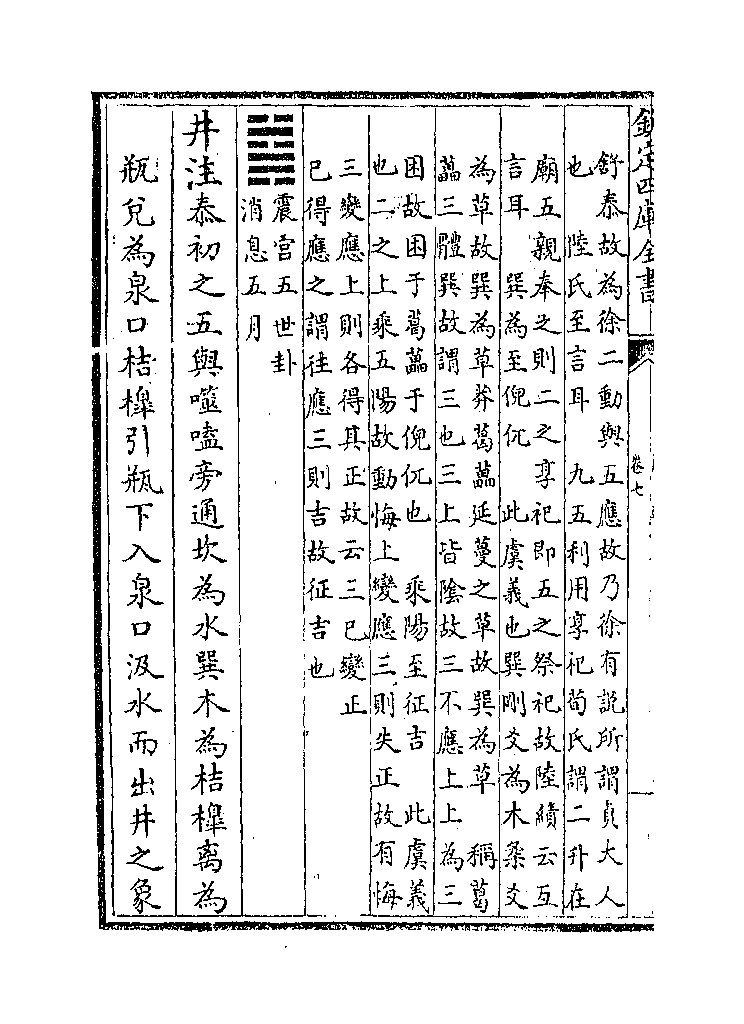 欽定四庫全書
卷七
舒泰故為徐二動與五應故乃徐有説所謂貞大人
也　陸氏至言耳　九五利用享祀荀氏謂二升在
廟五親奉之則二之享祀即五之祭祀故陸績云互
言耳　巽為至倪㐳　此虞義也巽剛爻為木柔爻
為草故巽為草莽葛藟延蔓之草故巽為草　稱葛
藟三體巽故謂三也三上皆陰故三不應上上為三
困故困于葛藟于倪㐳也　乘陽至征吉　此虞義
也二之上乘五陽故動悔上變應三則失正故有悔
三變應上則各得其正故云三已變正
已得應之謂往應三則吉故征吉也
震宫五世卦
消息五月
井注泰初之五與噬嗑旁通坎為水巽木為桔槹离為
瓶兌為泉口桔槹引瓶下入泉口汲水而出井之象